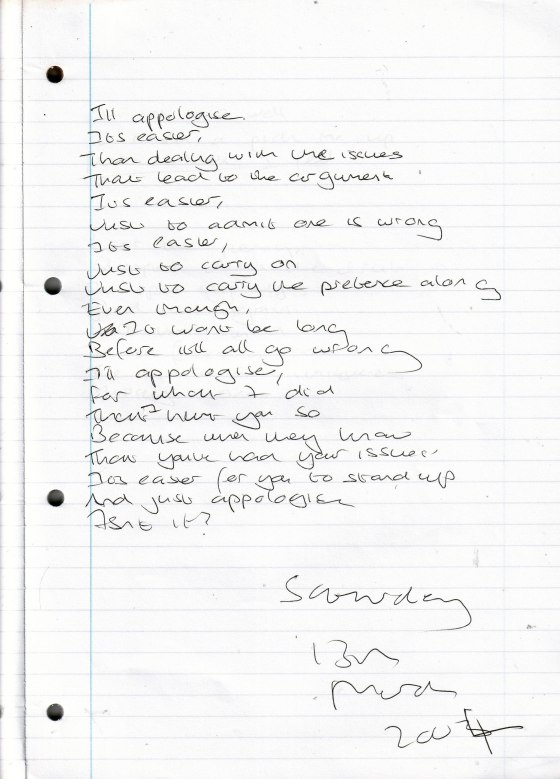 I'll appologise
Its easier,
Than dealing with the issues
That lead to the argument
Its easier,
Just to admit one is wrong
Its easier,
Just to carry on
Just to carry the pretence along
Even though,
It wont be long
Before itll all go wrong
I'll appologise,
For what I did
That hurt you so
Because when they know
That youve had your issues
Its easier for you to stand up
And just appologise
Isnt it?
Saturday
13th
March
2004